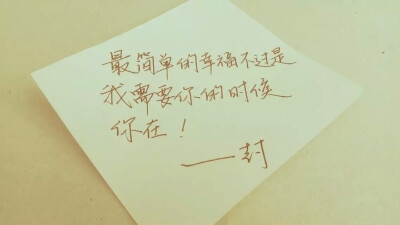 最简单的幸福不过是
我需要你的时候
你在！
——封